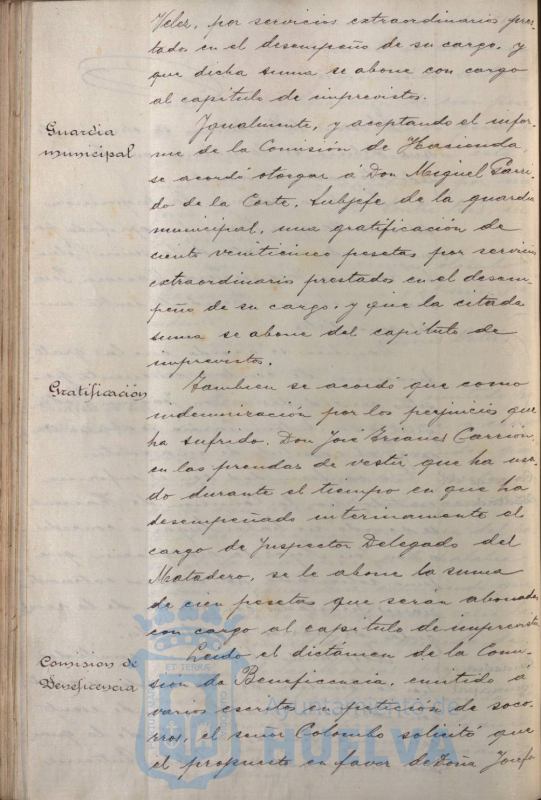 Velez, por servicios extraordinarios pres-
tados en el desempeño de su cargo, y
que dicha suma se abone con cargo
al capitulo de imprevistos.
Guardia
municipal
Igualmente, y aceptando el infor-
me de la Comisión de Hacienda,
se acordó otorgar á Don Miguel Garri-
do de la Corte, Subjefe de la guardia
municipal, una gratificación de
ciento veinticinco pesetas por servicios
extraordinarios prestados en el desem-
peño de su cargo, y que la citada
suma se abone del capitulo de
imprevistos.
Gratificación
Tambien se acordó que como
indemnización por los perjuicios que
ha sufrido, Don José Carrión,
en las prendas de vestir que ha usa-
do durante el tiempo en que ha
desempeñado interinamente el
cargo de Inspector Delegado del
Matadero, se le abone la suma
de cien pesetas que serán abonadas
con cargo al capitulo de imprevistos
Comision de
Beneficencia
Leido el dictamen de la Comi-
sión de Beneficencia, emitido á
varios escritos en peticion de soco-
rros, el señor Colombo solicitó que
el propuesto en favor de Doña Josefa
ET TERRÆ
Ayuntamiento de
HUELVA